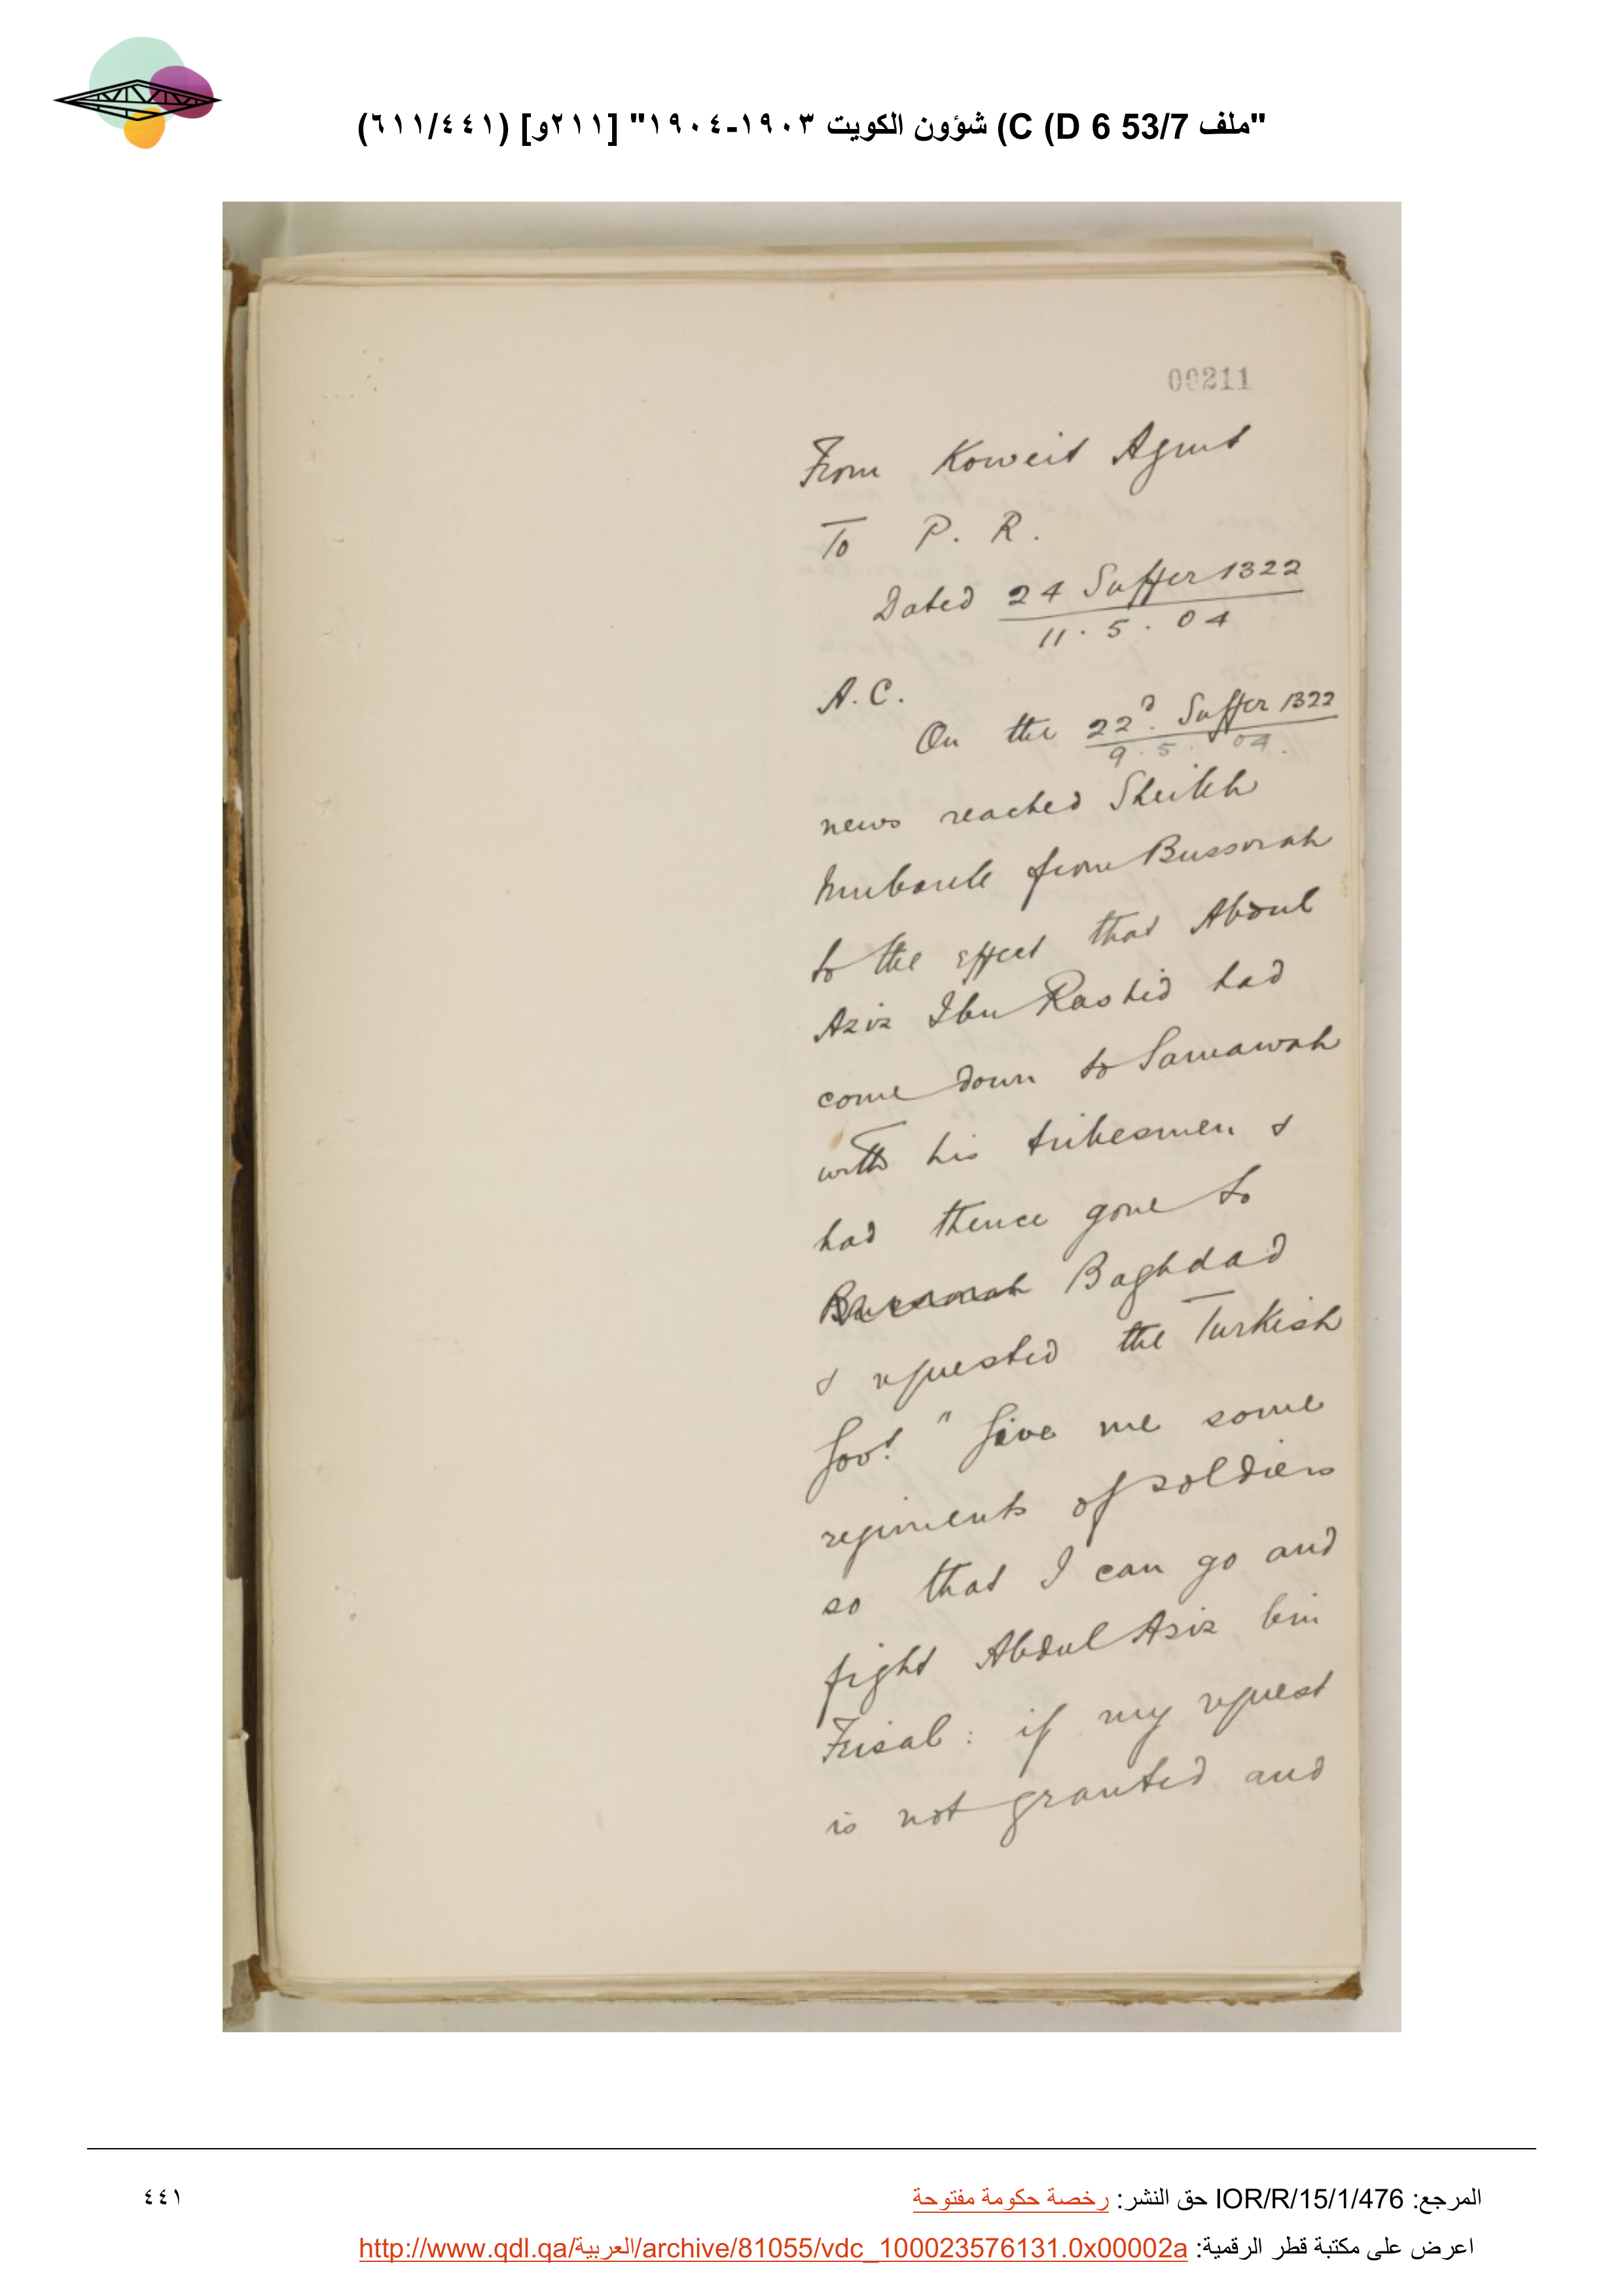 "ملف 53/7 C (D 6) شؤون الكويت ١٩٠٣-١٩٠٤" [٢١١و] (٦١١/٤٤١)
00211
From Koweit Agent
To P. R.
Dated 24 Suffer 1322
11. 5. 04
A. C.
On the 22d. Suffer 1322
9. 5. 04.
news reached Sheikh
Mubarek from Bussorah
to the effect that Abdul
Aziz Ibn Rashid had
come down to Samawah
with his tribesmen &
had thence gone to
Bussorah Baghdad
& requested the Turkish
Govt "Give me some
regiments of soldiers
so that I can go and
fight Abdul Aziz bin
Feisal : if my request
is not granted and
المرجع: IOR/R/15/1/476 حق النشر: رخصة حكومة مفتوحة
٤٤١
اعرض على مكتبة قطر الرقمية: http://www.qdl.qa/العربية/archive/81055/vdc_100023576131.0x00002a